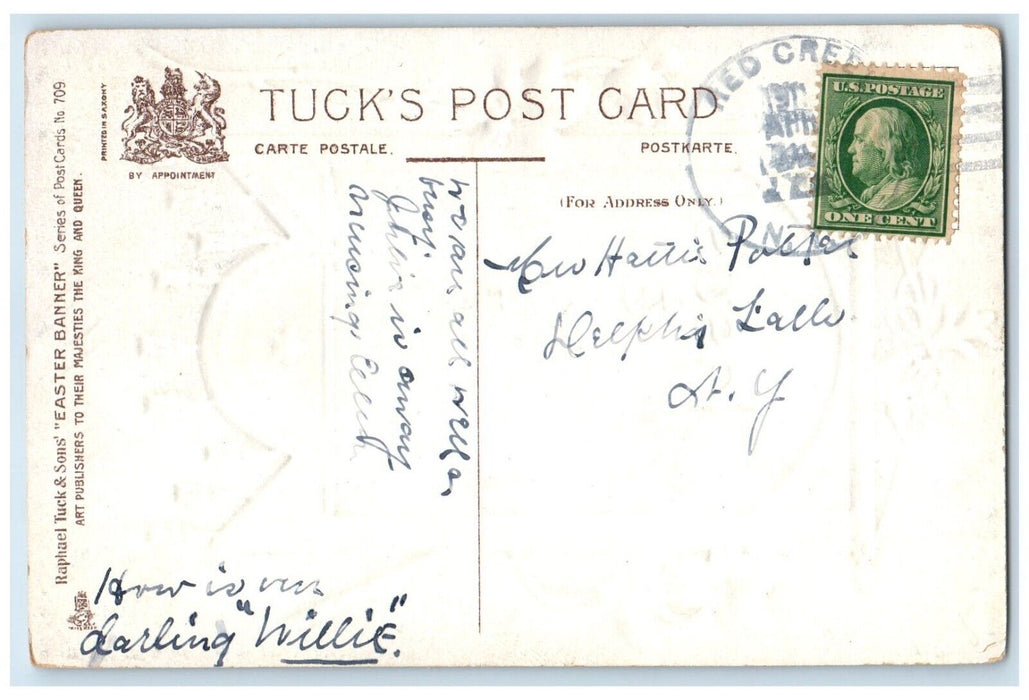 TUCK'S POST CARD
CARTE POSTALE. POSTKARTE.
(FOR ADDRESS ONLY.)
PRINTED IN SAXONY
BY APPOINTMENT
Raphael Tuck & Sons' "EASTER BANNER" Series of Post Cards No 709
ART PUBLISHERS TO THEIR MAJESTIES THE KING AND QUEEN.
RED CREE
APR
N.
U.S. POSTAGE
ONE CENT
Hattie Potter
Delphi Falls
N. Y
We are all well &
busy
Julia is away
nursing
How is our
darling "Willie".